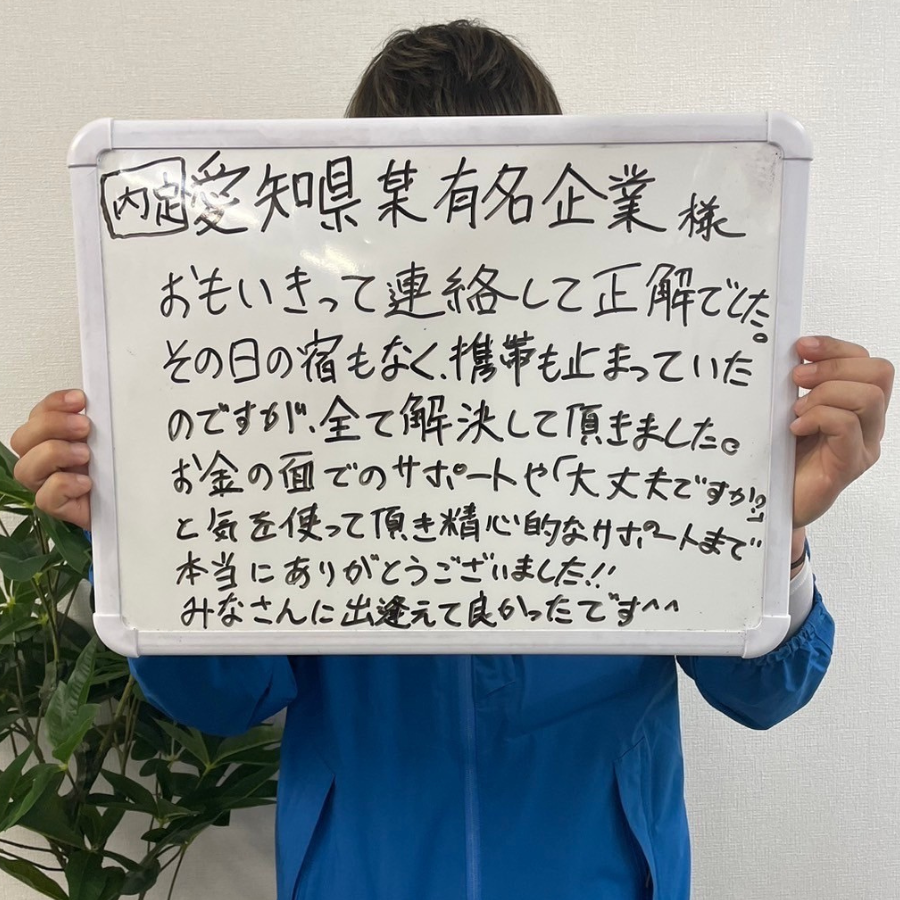 内定 愛知県某有名企業 様
おもいきって連絡して正解でした。
その日の宿もなく、携帯も止まっていた
のですが、全て解決して頂きました。
お金の面でのサポートや「大丈夫ですか?」
と気を使って頂き精心的なサポートまで
本当にありがとうございました!!
みなさんに出逢えて良かったです^^